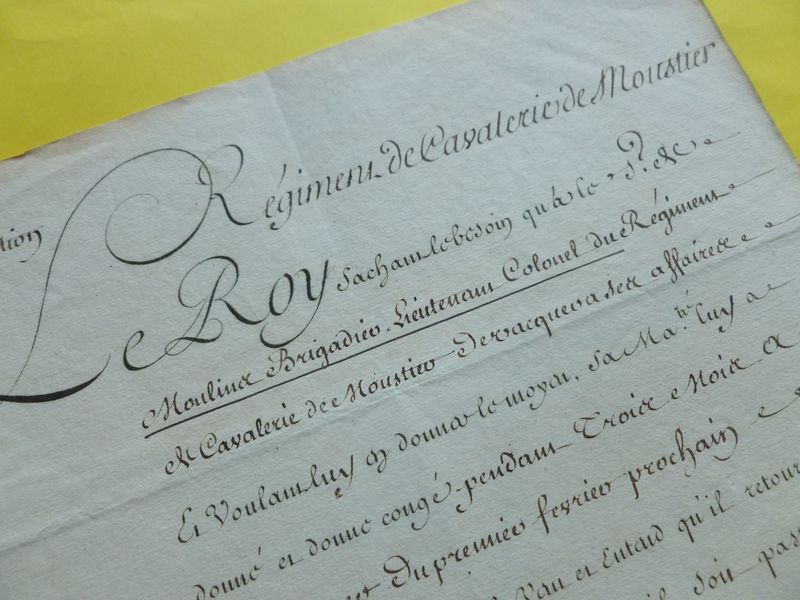 Régiment de Cavalerie de Moustier
tion
Le Roy sachant le besoin qu'a le Sr. de
Moulins Brigadier, Lieutenant Colonel du Régiment
de Cavalerie de Moustier de vacquer a ses affaires
Et Voulant luy en donner le moyen, Sa Maté. luy a
donné et donne congé pendant Trois Mois a
Du premier fevrier prochain
Veut et Entend qu'il retour
il soit pas